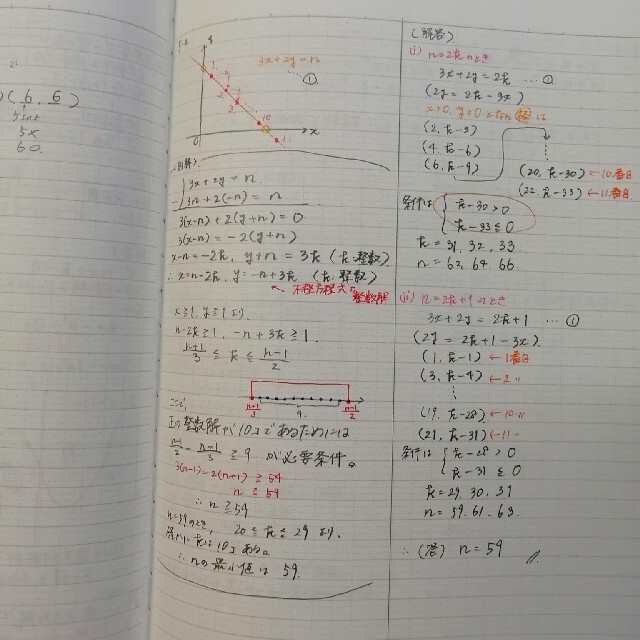 (6, 6)
5x
60
y
3x+2y=n
①
x
0
10
11
(別解)
3x+2y=n
-) 3n+2(-n)=n
3(x-n)+2(y+n)=0
3(x-n)=-2(y+n)
x-n=-2k, y+n=3k (k:整数)
∴ x=n-2k, y=-n+3k (k:整数)
↖ 不定方程式の
整数解
x≧1, y≧1 より
n-2k≧1, -n+3k≧1
n+1/3 ≦ k ≦ n-1/2
n+1/3
9
n-1/2
ここで、
正の整数解が10コであるためには
n-1/2 - n+1/3 ≧ 9 が必要条件。
3(n-1)-2(n+1)≧54
n≧59
∴ n≧59
n=59のとき, 20≦k≦29 より,
kは10コある。
∴ nの最小値は 59.
(解答)
(i) n=2kのとき
3x+2y=2k … ①
(2y=2k-3x)
x>0, y>0
(2, k-3)
(4, k-6)
(6, k-9)
(20, k-30) ←10番目
(22, k-33) ←11番目
条件は { k-30>0
k-33≦0
k=31, 32, 33
n=62, 64, 66
(ii) n=2k+1のとき
3x+2y=2k+1 … ①
(2y=2k+1-3x)
(1, k-1) ←1番目
(3, k-4) ←2〃
(19, k-28) ←10〃
(21, k-31) ←11〃
条件は { k-28>0
k-31≦0
k=29, 30, 31
n=59, 61, 63
∴ (答) n=59